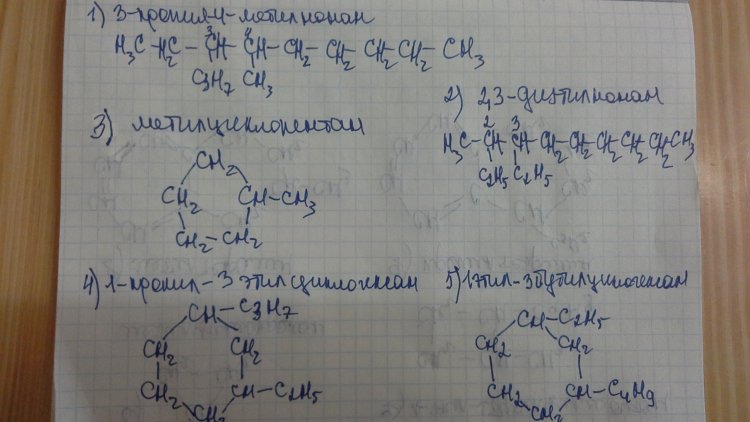 1) 3-пропил-4-метилнонан
3 4
H₃C-H₂C-CH-CH-CH₂-CH₂-CH₂-CH₂-CH₃
C₃H₇ CH₃
2) 2,3-диэтилнонан
2 3
H₃C-CH-CH-CH₂-CH₂-CH₂-CH₂-CH₂-CH₃
C₂H₅ C₂H₅
3) метилциклопентан
CH₂
CH₂ CH-CH₃
CH₂-CH₂
4) 1-пропил-3 этилциклогексан
CH-C₃H₇
CH₂ CH₂
CH₂ CH-C₂H₅
CH₂
5) 1этил-3бутилциклогексан
CH-C₂H₅
CH₂ CH₂
CH₂ CH-C₄H₉
CH₂